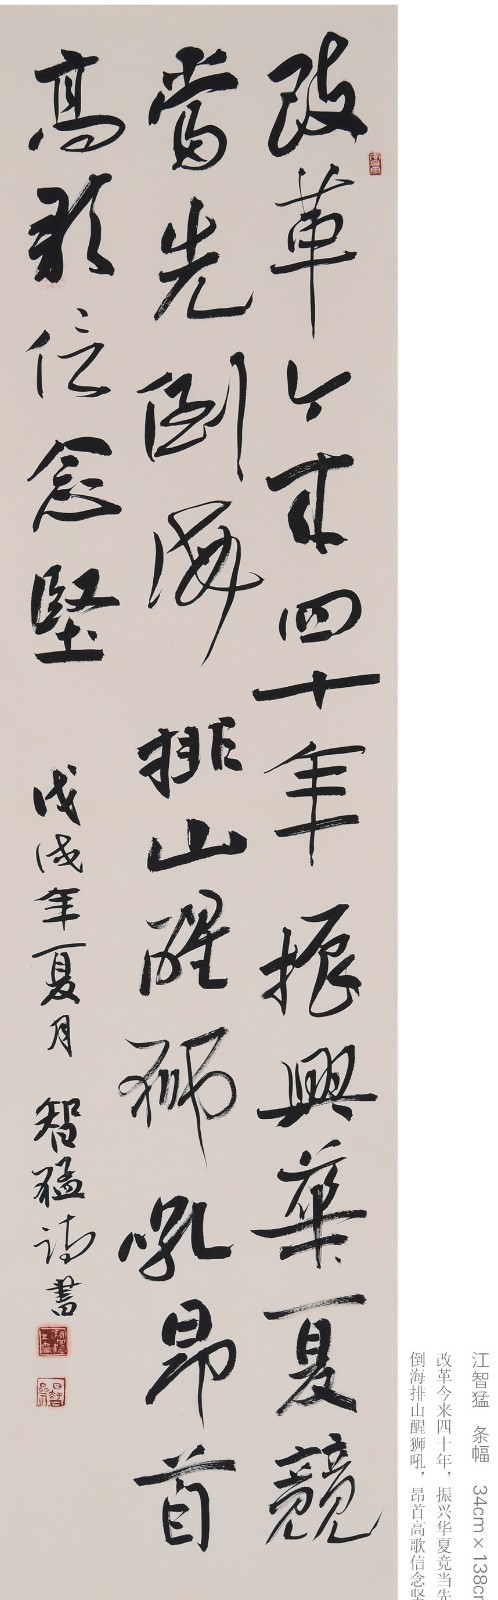 改革今来四十年振興華夏競
當先倒海排山醒狮吼昂首
高歌信念堅
戊戌年夏月 智猛诗書
江智猛 条幅 34cm×138cm
改革今来四十年，振兴华夏竞当先
倒海排山醒狮吼，昂首高歌信念坚